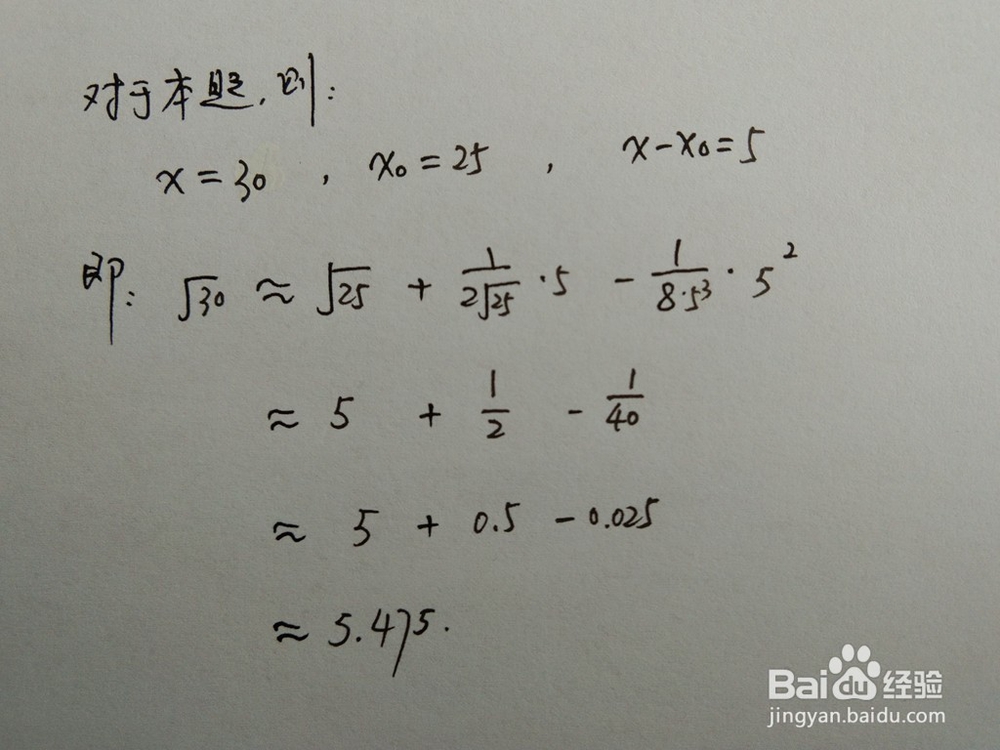 对于本题,则:
x=30 , x₀=25 , x-x₀=5
即: √30 ≈ √25 + 1/(2√25) ·5 - 1/(8·5³) · 5²
≈ 5 + 1/2 - 1/40
≈ 5 + 0.5 - 0.025
≈ 5.475.
Baidu 经验
jingyan.baidu.com